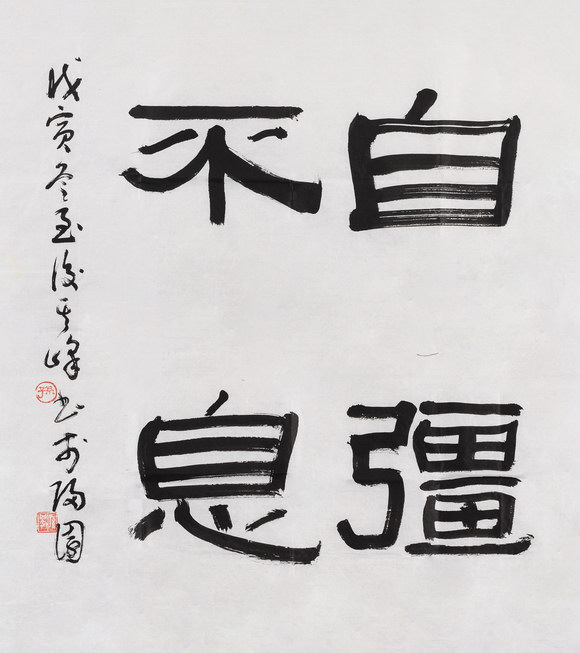 自彊
不息
戊寅冬至後其峰书於園
孫